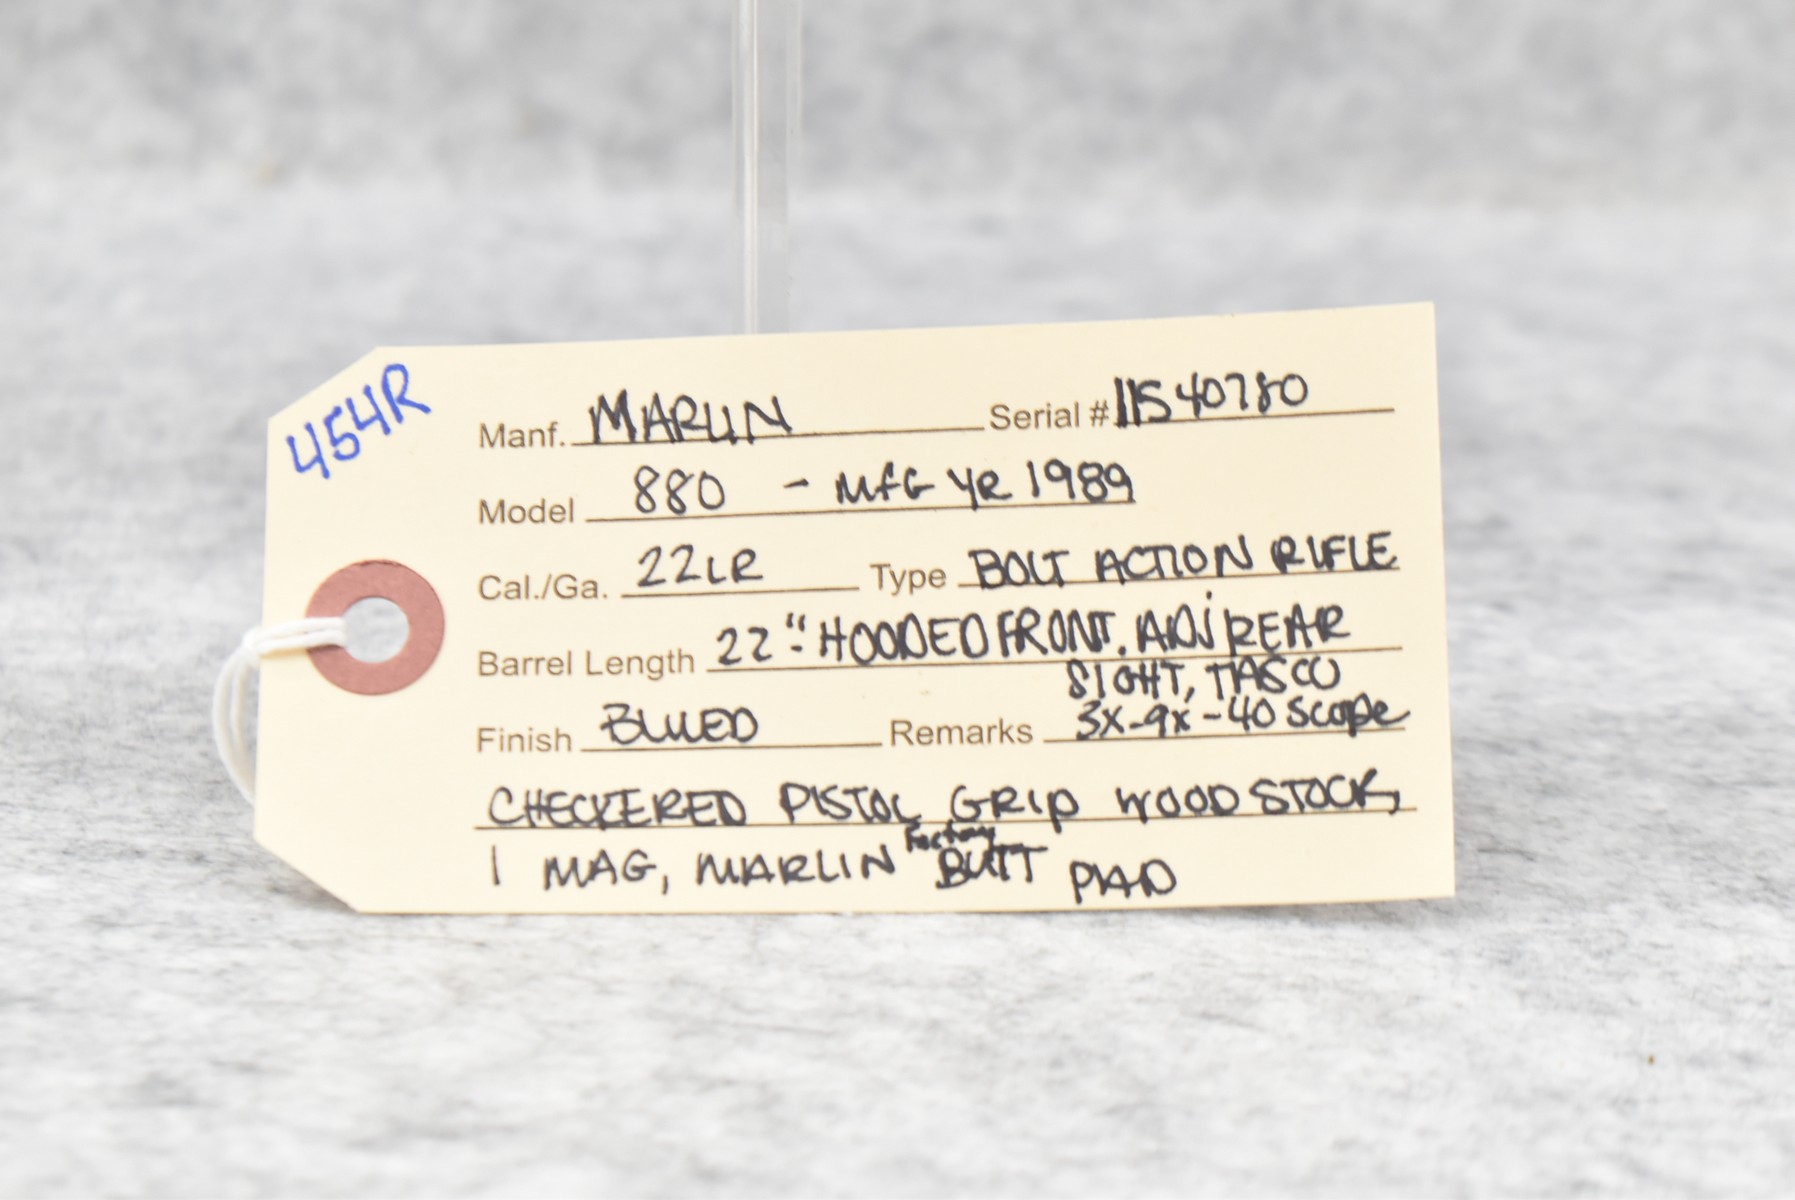 454R
Manf. MARLIN Serial # 11540780
Model 880 - MFG YR 1989
Cal./Ga. 22LR Type BOLT ACTION RIFLE
Barrel Length 22" - HOODED FRONT. ADJ REAR
SIGHT, TASCO
Finish BLUED Remarks 3X-9X-40 Scope
CHECKERED PISTOL GRIP WOOD STOCK,
1 MAG, MARLIN Factory BUTT PAD